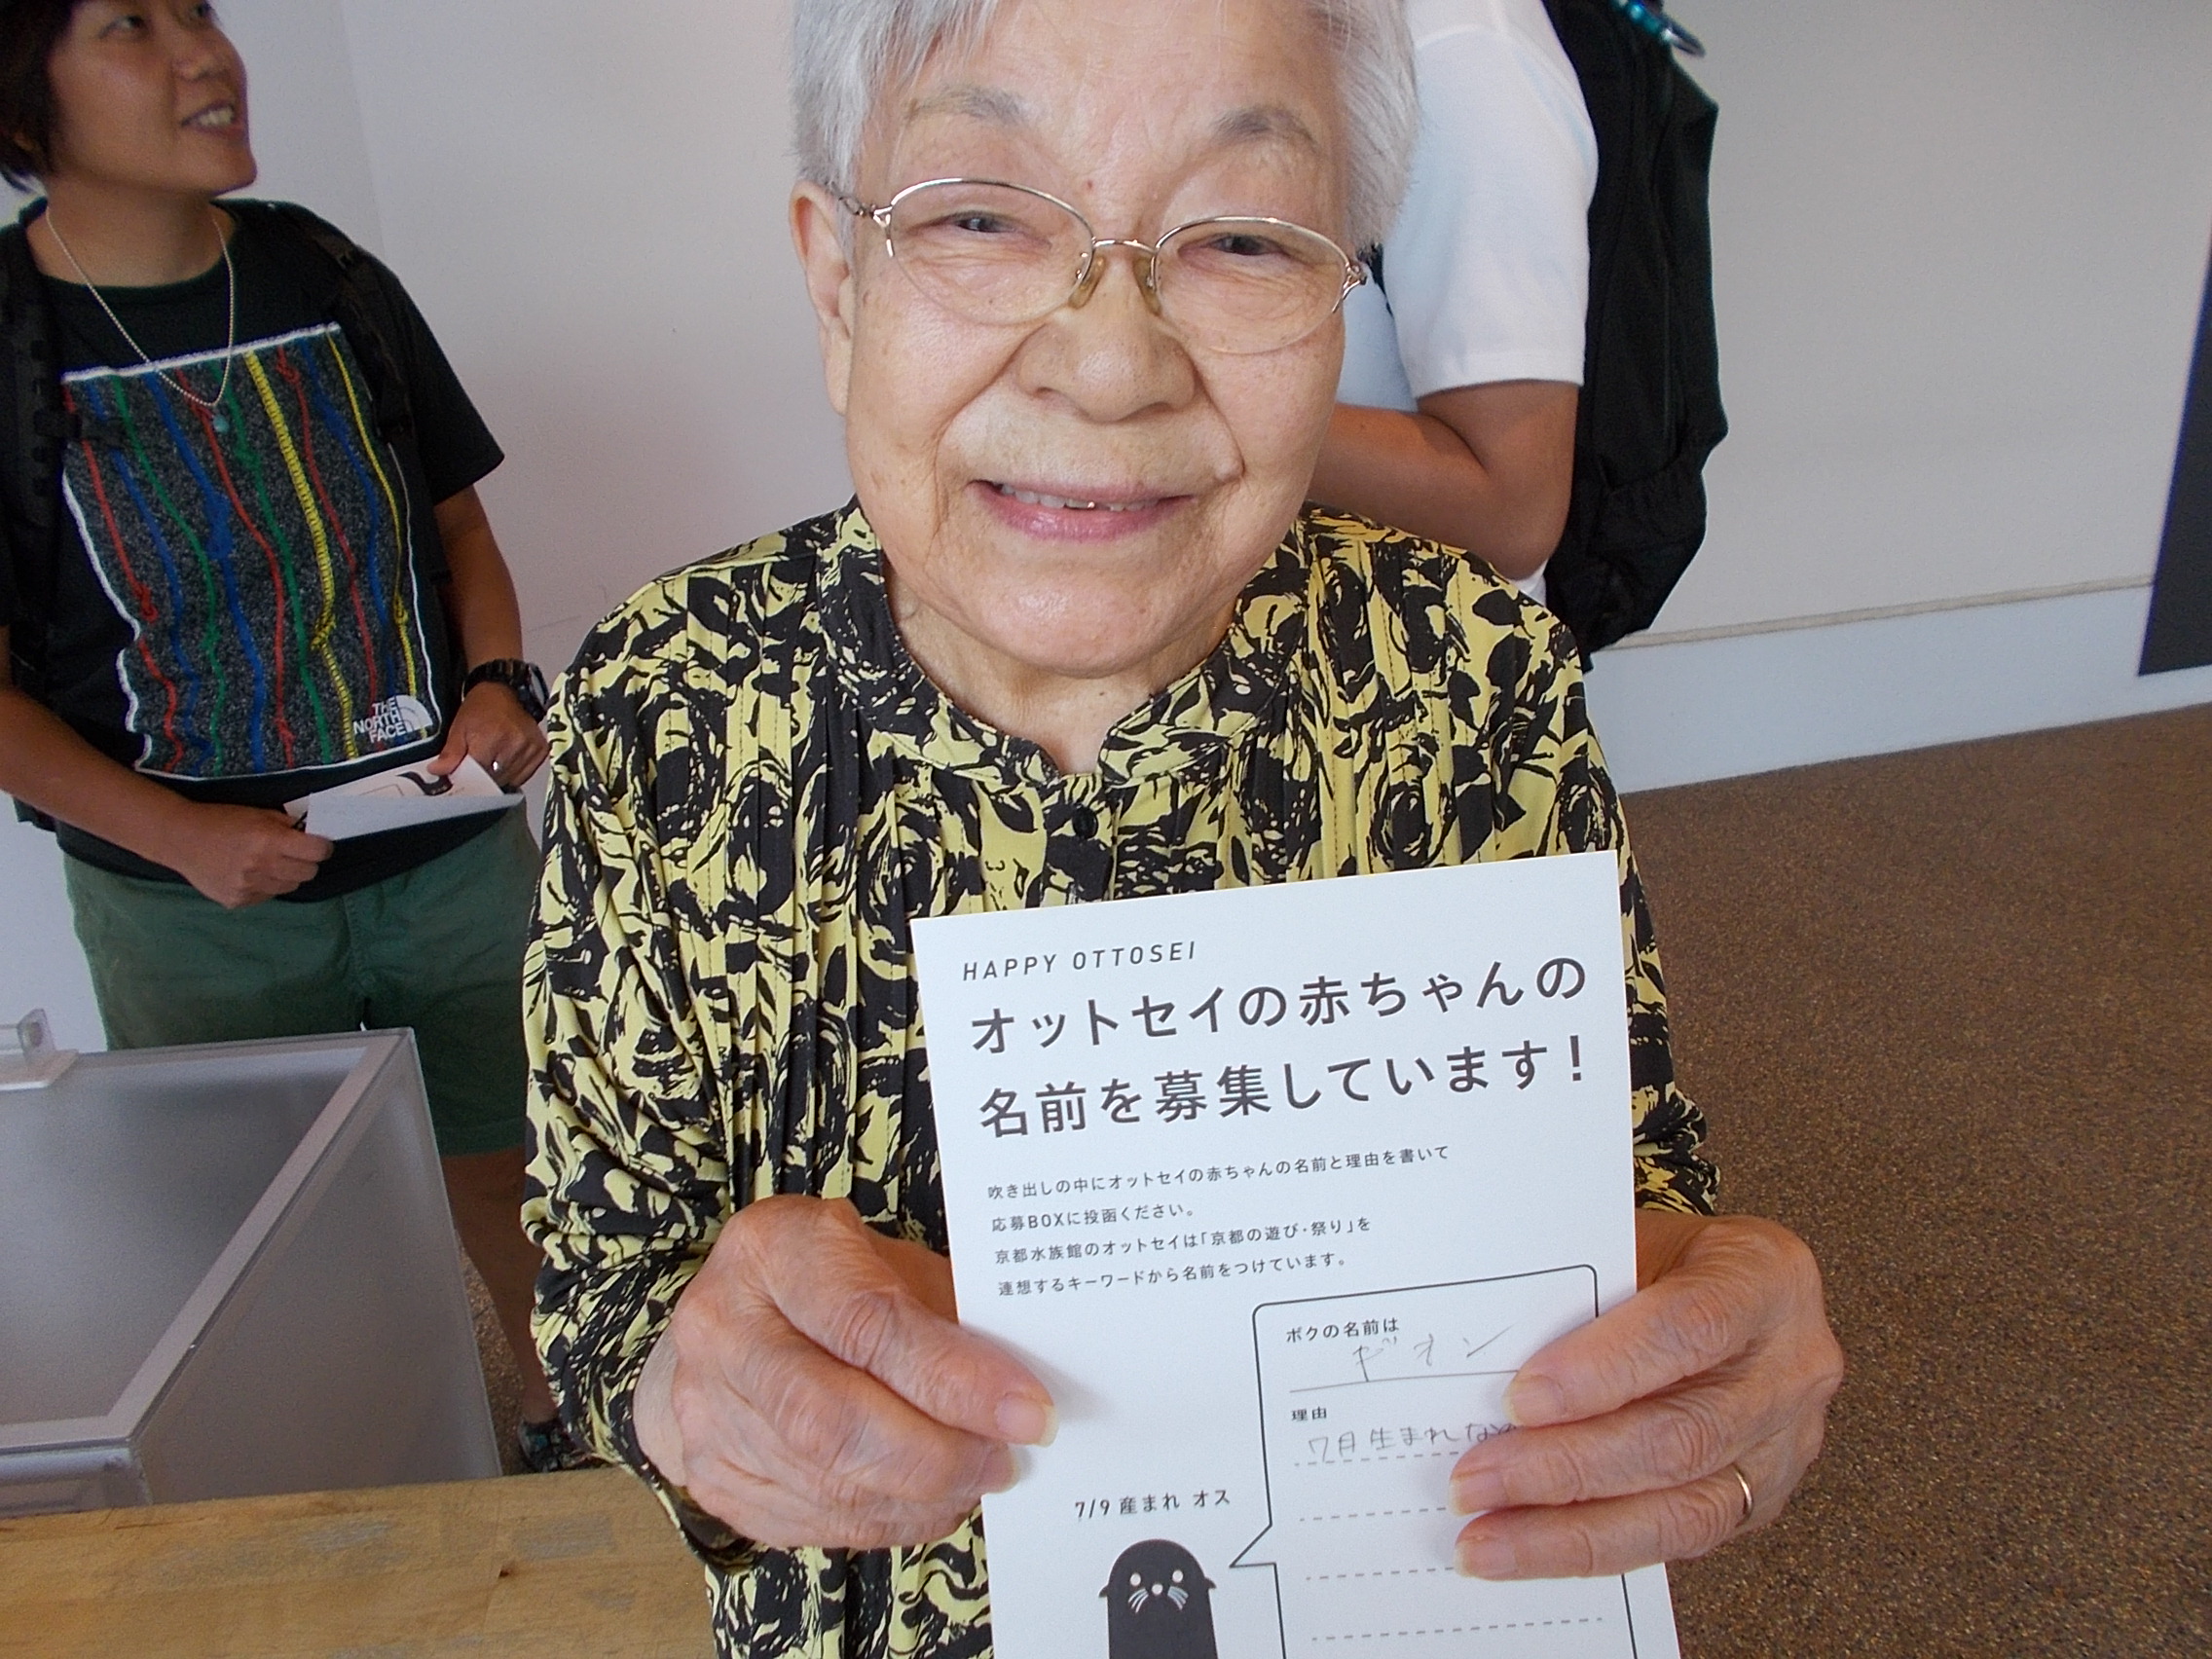 THE
NORTH
FACE
HAPPY OTTOSEI
オットセイの赤ちゃんの
名前を募集しています!
吹き出しの中にオットセイの赤ちゃんの名前と理由を書いて
応募BOXに投函ください。
京都水族館のオットセイは「京都の遊び・祭り」を
連想するキーワードから名前をつけています。
ボクの名前は
ギオン
理由
7月生まれ
7/9 産まれ オス